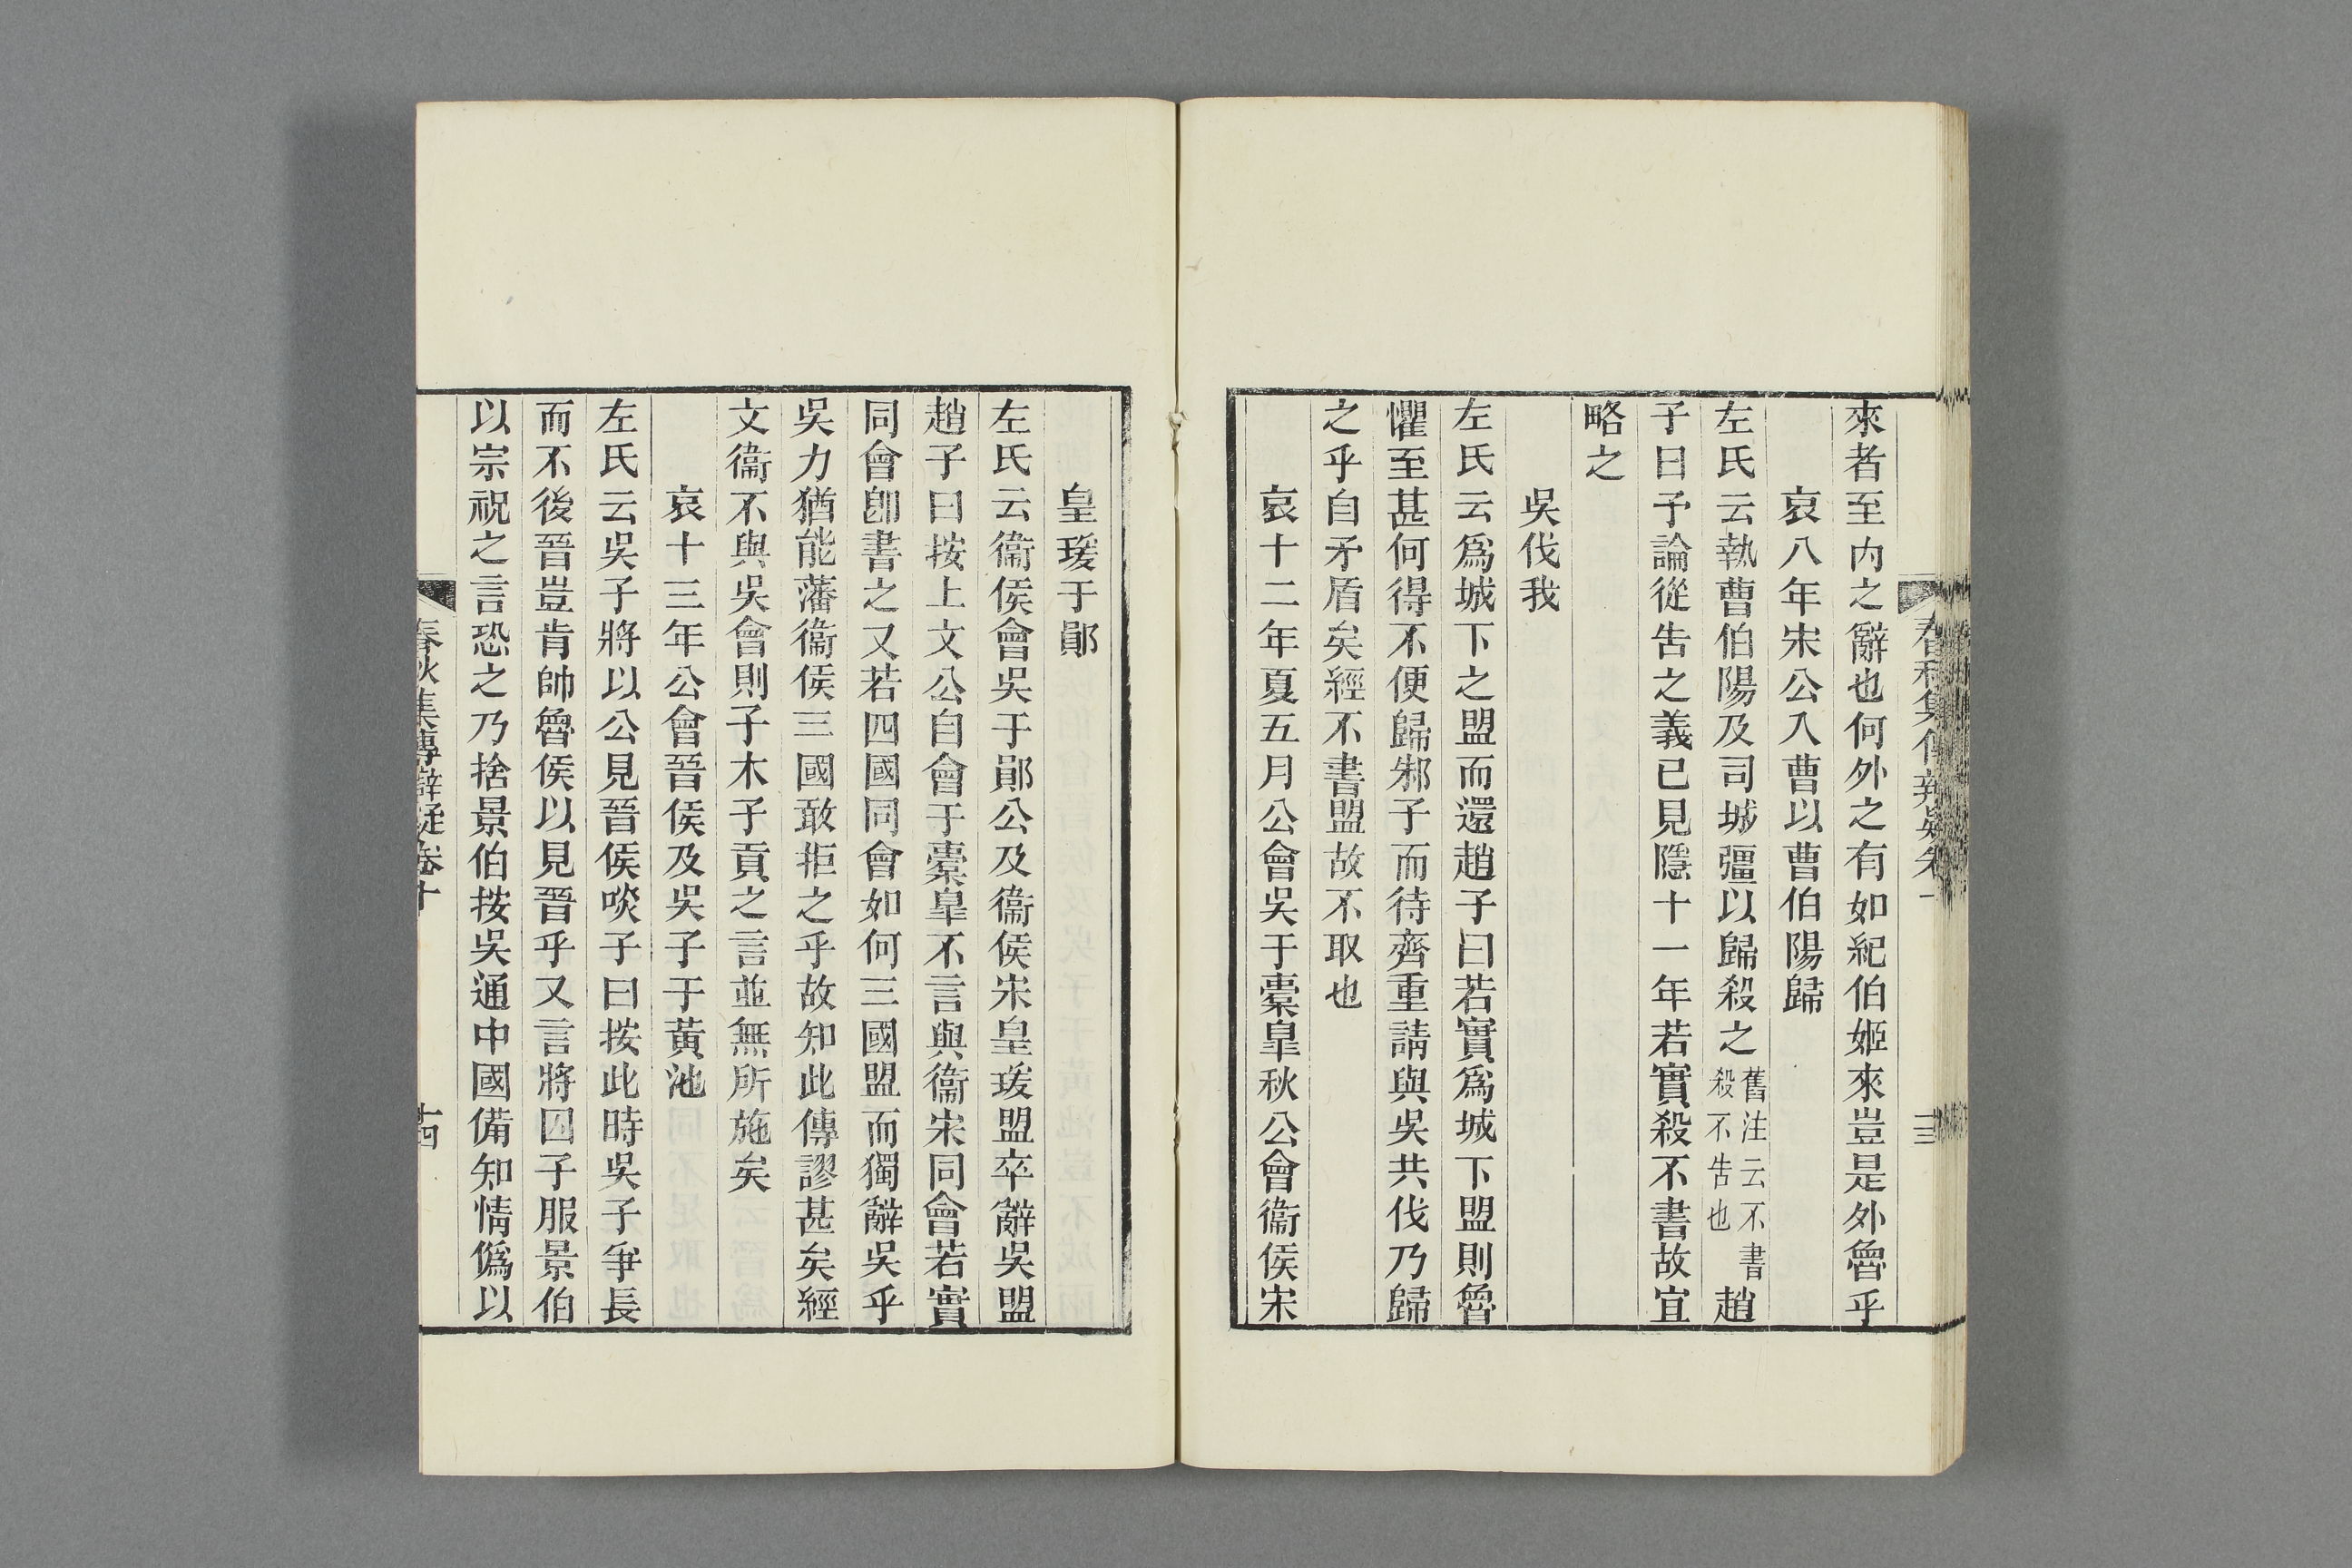 來者至内之辭也何外之有如紀伯姬來豈是外魯乎
哀八年宋公入曹以曹伯陽歸
左氏云執曹伯陽及司城彊以歸殺之舊注云不書殺不告也趙
子曰予論從告之義已見隱十一年若實殺不書故宜
略之
吳伐我
左氏云爲城下之盟而還趙子曰若實爲城下盟則魯
懼至甚何得不便歸邾子而待齊重請與吳共伐乃歸
之乎自矛盾矣經不書盟故不取也
哀十二年夏五月公會吳于橐皐秋公會衞侯宋
皇瑗于鄖
左氏云衞侯會吳于鄖公及衞侯宋皇瑗盟卒辭吳盟
趙子曰按上文公自會于橐皐不言與衞宋同會若實
同會卽書之又若四國同會如何三國盟而獨辭吳乎
吳力猶能藩衞侯三國敢拒之乎故知此傳謬甚矣經
文衞不與吳會則子木子貢之言並無所施矣
哀十三年公會晉侯及吳子于黃池
左氏云吳子將以公見晉侯啖子曰按此時吳子爭長
而不後晉豈肯帥魯侯以見晉乎又言將囚子服景伯
以宗祝之言恐之乃捨景伯按吳通中國備知情僞以
春秋集傳辯疑卷十
十四